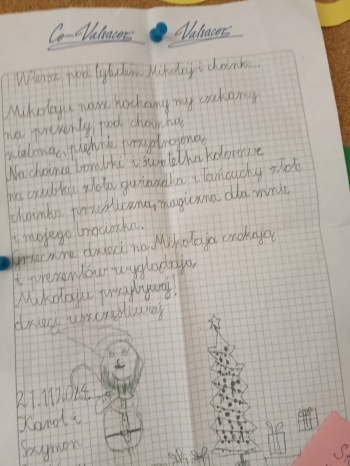 Co-Valsacor Valsacor
Wiersz pod tytułem Mikołaj i choinka.
Mikołaju nasz kochany my czekamy
na prezenty, pod choinką
zieloną, pięknie przystrojoną
Na choince bombki i światełka kolorowe
na czubku złota gwiazdka i łańcuchy złote
choinka prześliczna, magiczna dla mnie
i mojego braciszka.
grzeczne dzieci na Mikołaja czekają
i prezentów wyglądają
Mikołaju przybywaj!
dzieci uszczęśliwiaj
21.11.2024
Karol i
Szymon